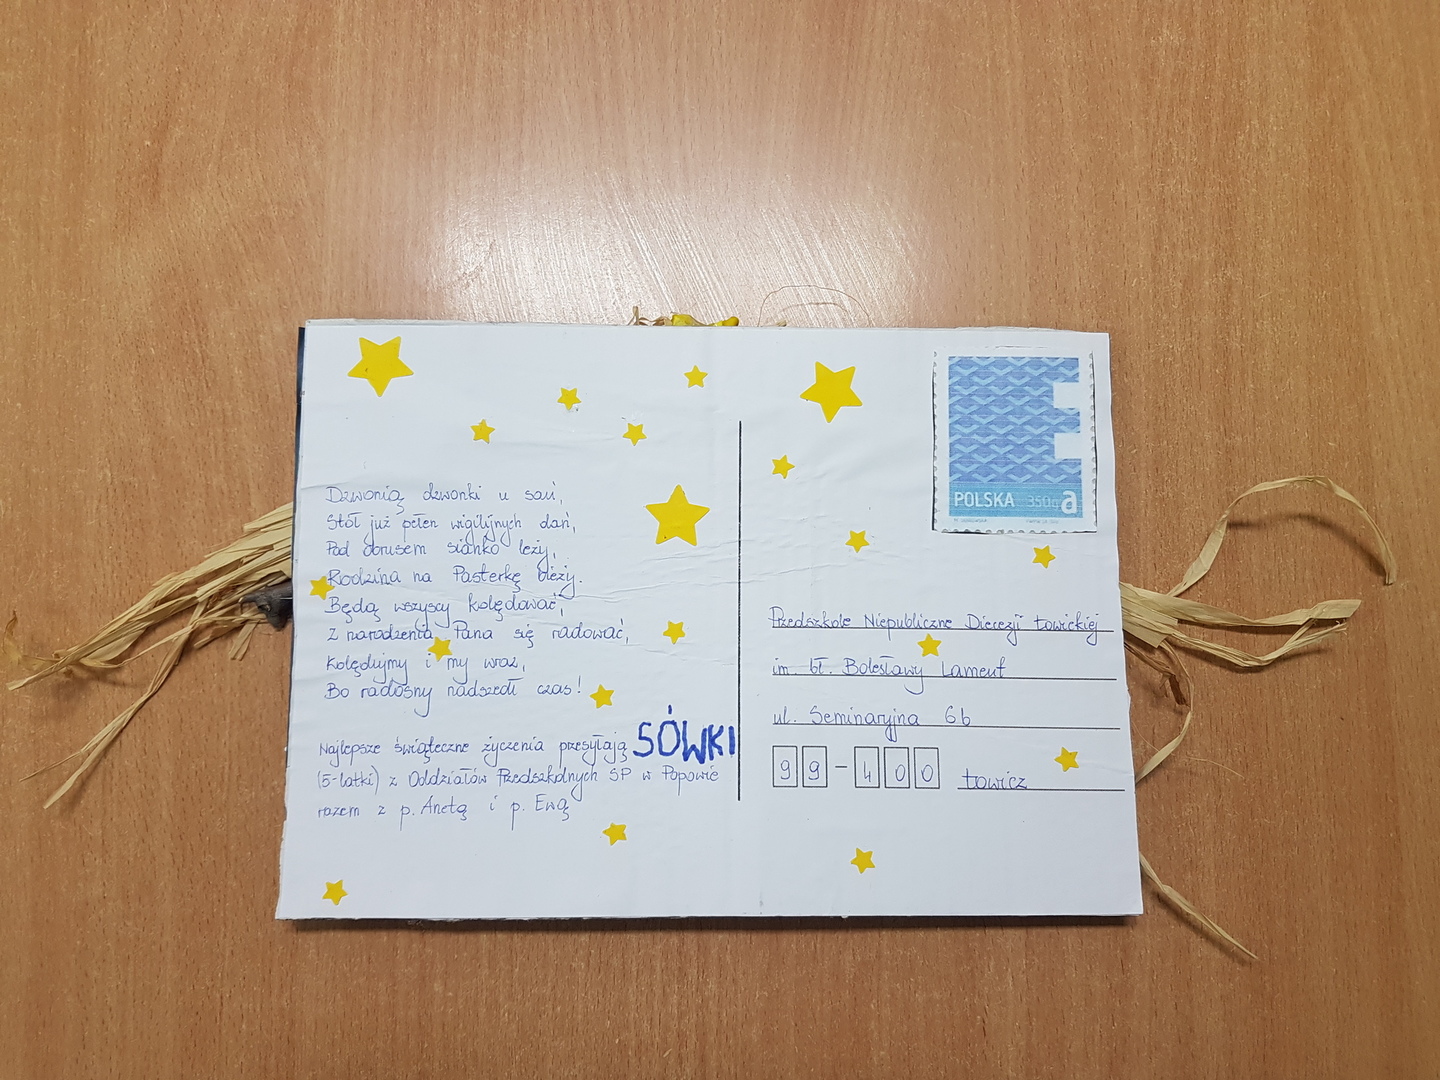 Dzwonią dzwonki u sań,
Stół już pełen wigilijnych dań,
Pod obrusem sianko leży,
Rodzina na Pasterkę bieży.
Będą wszyscy kolędować,
Z narodzenia Pana się radować,
Kolędujmy i my wraz,
Bo radosny nadszedł czas!
Najlepsze świąteczne życzenia przesyłają SÓWKI
(5-latki) z Oddziałów Przedszkolnych SP w Popowie
razem z p. Anetą i p. Ewą
POLSKA 350g a
Przedszkole Niepubliczne Diecezji Łowickiej
im. bł. Bolesławy Lament
ul. Seminaryjna 6b
99-400 Łowicz